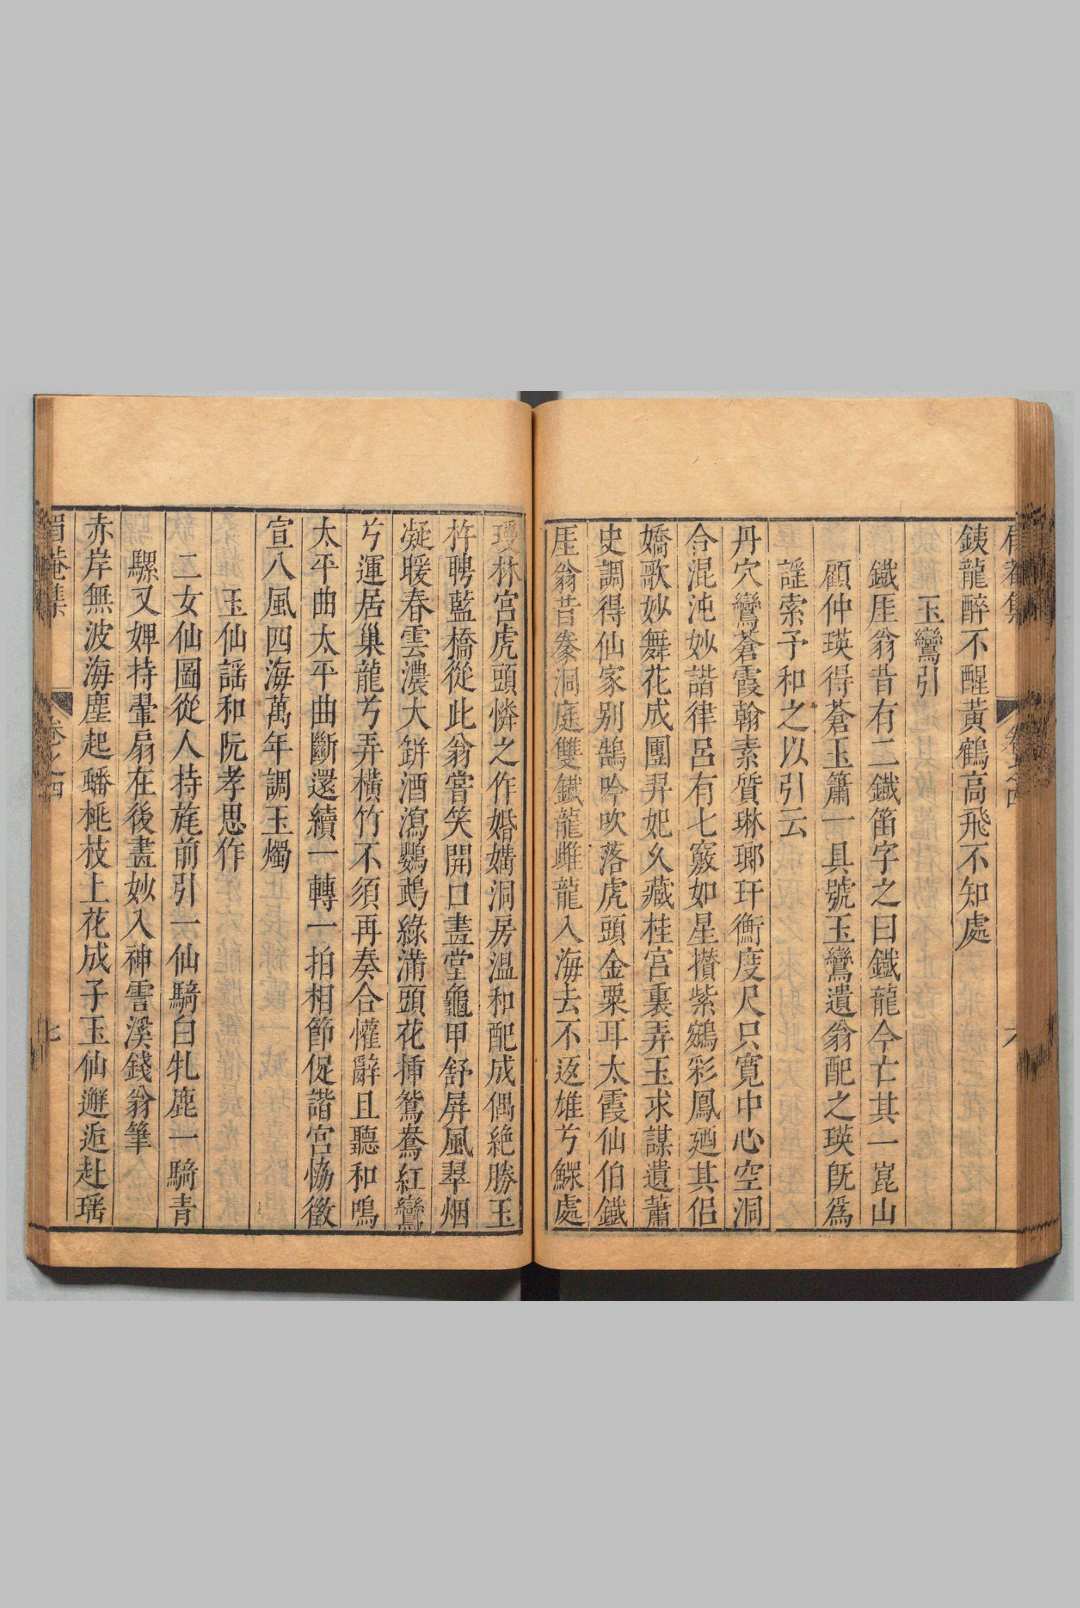 銕龍醉不醒黃鶴高飛不知處
玉鸞引
鐵厓翁昔有二鐵笛字之曰鐵龍今亡其一崑山
顧仲瑛得蒼玉簫一具號玉鸞遺翁配之瑛旣爲
謡索予和之以引云
丹穴鸞蒼霞翰素質琳瑯玕衡度尺只寛中心空洞
含混沌妙諧律呂有七竅如星攅紫鵷彩鳳廼其侶
嬌歌妙舞花成團羿妃久藏桂宫裏弄玉求謀遺蕭
史調得仙家别鵠吟吹落虎頭金粟耳太霞仙伯鐵
厓翁昔豢洞庭雙鐵龍雌龍入海去不返雄兮鰥處
瓊林宫虎頭憐之作婚媾洞房溫和配成偶絶勝玉
杵聘藍橋從此翁嘗笑開口畫堂龜甲舒屏風翠烟
凝暖春雲濃大缾酒瀉鸚鵡綠滿頭花挿鴛鴦紅鸞
兮運居巢龍兮弄横竹不須再奏合懽辭且聽和鳴
太平曲太平曲斷還續一轉一拍相節促諧宫恊徵
宣八風四海萬年調玉燭
玉仙謡和阮孝思作
二女仙圖從人持旄前引一仙騎白牝鹿一騎青
騾又婢持翬扇在後畫妙入神霅溪錢翁筆
赤岸無波海塵起蟠桃枝上花成子玉仙邂逅赴瑶
眉菴集
卷之四
七